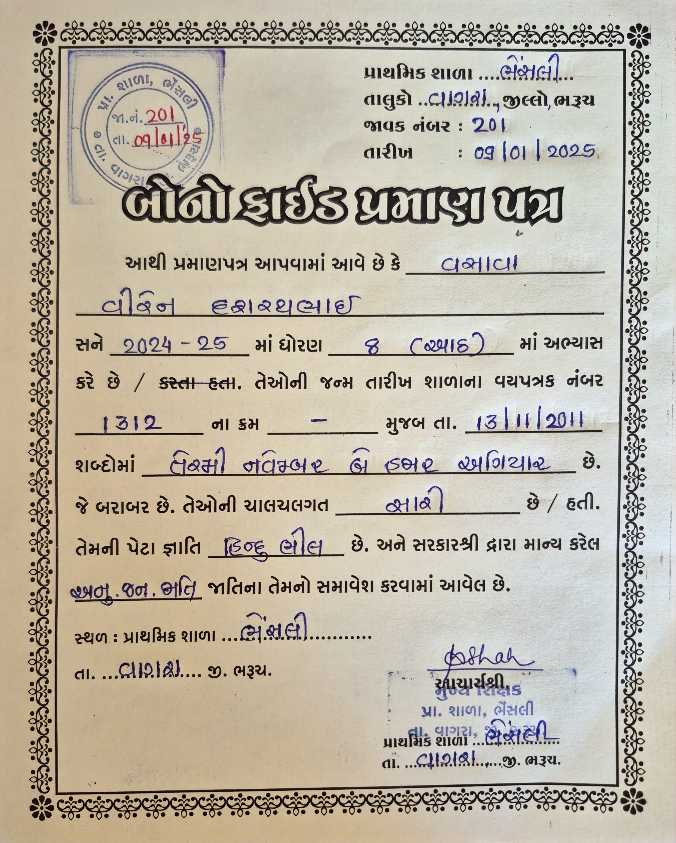 પ્રા. શાળા, ભેંસલી
જા.નં. 201
તા. 09/01/25
તા. વાગરા
પ્રાથમિક શાળા ....ભેંસલી...
તાલુકો ..વાગરા.., જીલ્લો, ભરૂચ
જાવક નંબર : 201
તારીખ : 09/01/2025
બોનો ફાઈડ પ્રમાણ પત્ર
આથી પ્રમાણપત્ર આપવામાં આવે છે કે વસાવા
વીરેન દશરથભાઈ
સને 2024-25 માં ધોરણ 8 (આઠ) માં અભ્યાસ
કરે છે / કરતા હતા. તેઓની જન્મ તારીખ શાળાના વયપત્રક નંબર
1312 ના ક્રમ – મુજબ તા. 13/11/2011
શબ્દોમાં તેરમી નવેમ્બર બે હજાર અગિયાર છે.
જે બરાબર છે. તેઓની ચાલચલગત સારી છે / હતી.
તેમની પેટા જ્ઞાતિ હિન્દુ ભીલ છે. અને સરકારશ્રી દ્વારા માન્ય કરેલ
અનુ.જન.જાતિ જાતિના તેમનો સમાવેશ કરવામાં આવેલ છે.
સ્થળ : પ્રાથમિક શાળા ...ભેંસલી............
તા. ...વાગરા.... જી. ભરૂચ.
આચાર્યશ્રી,
મુખ્ય શિક્ષક
પ્રા. શાળા, ભેંસલી
તા. વાગરા,
પ્રાથમિક શાળા ...ભેંસલી.......
તાં. ...વાગરા......જી. ભરૂચ.